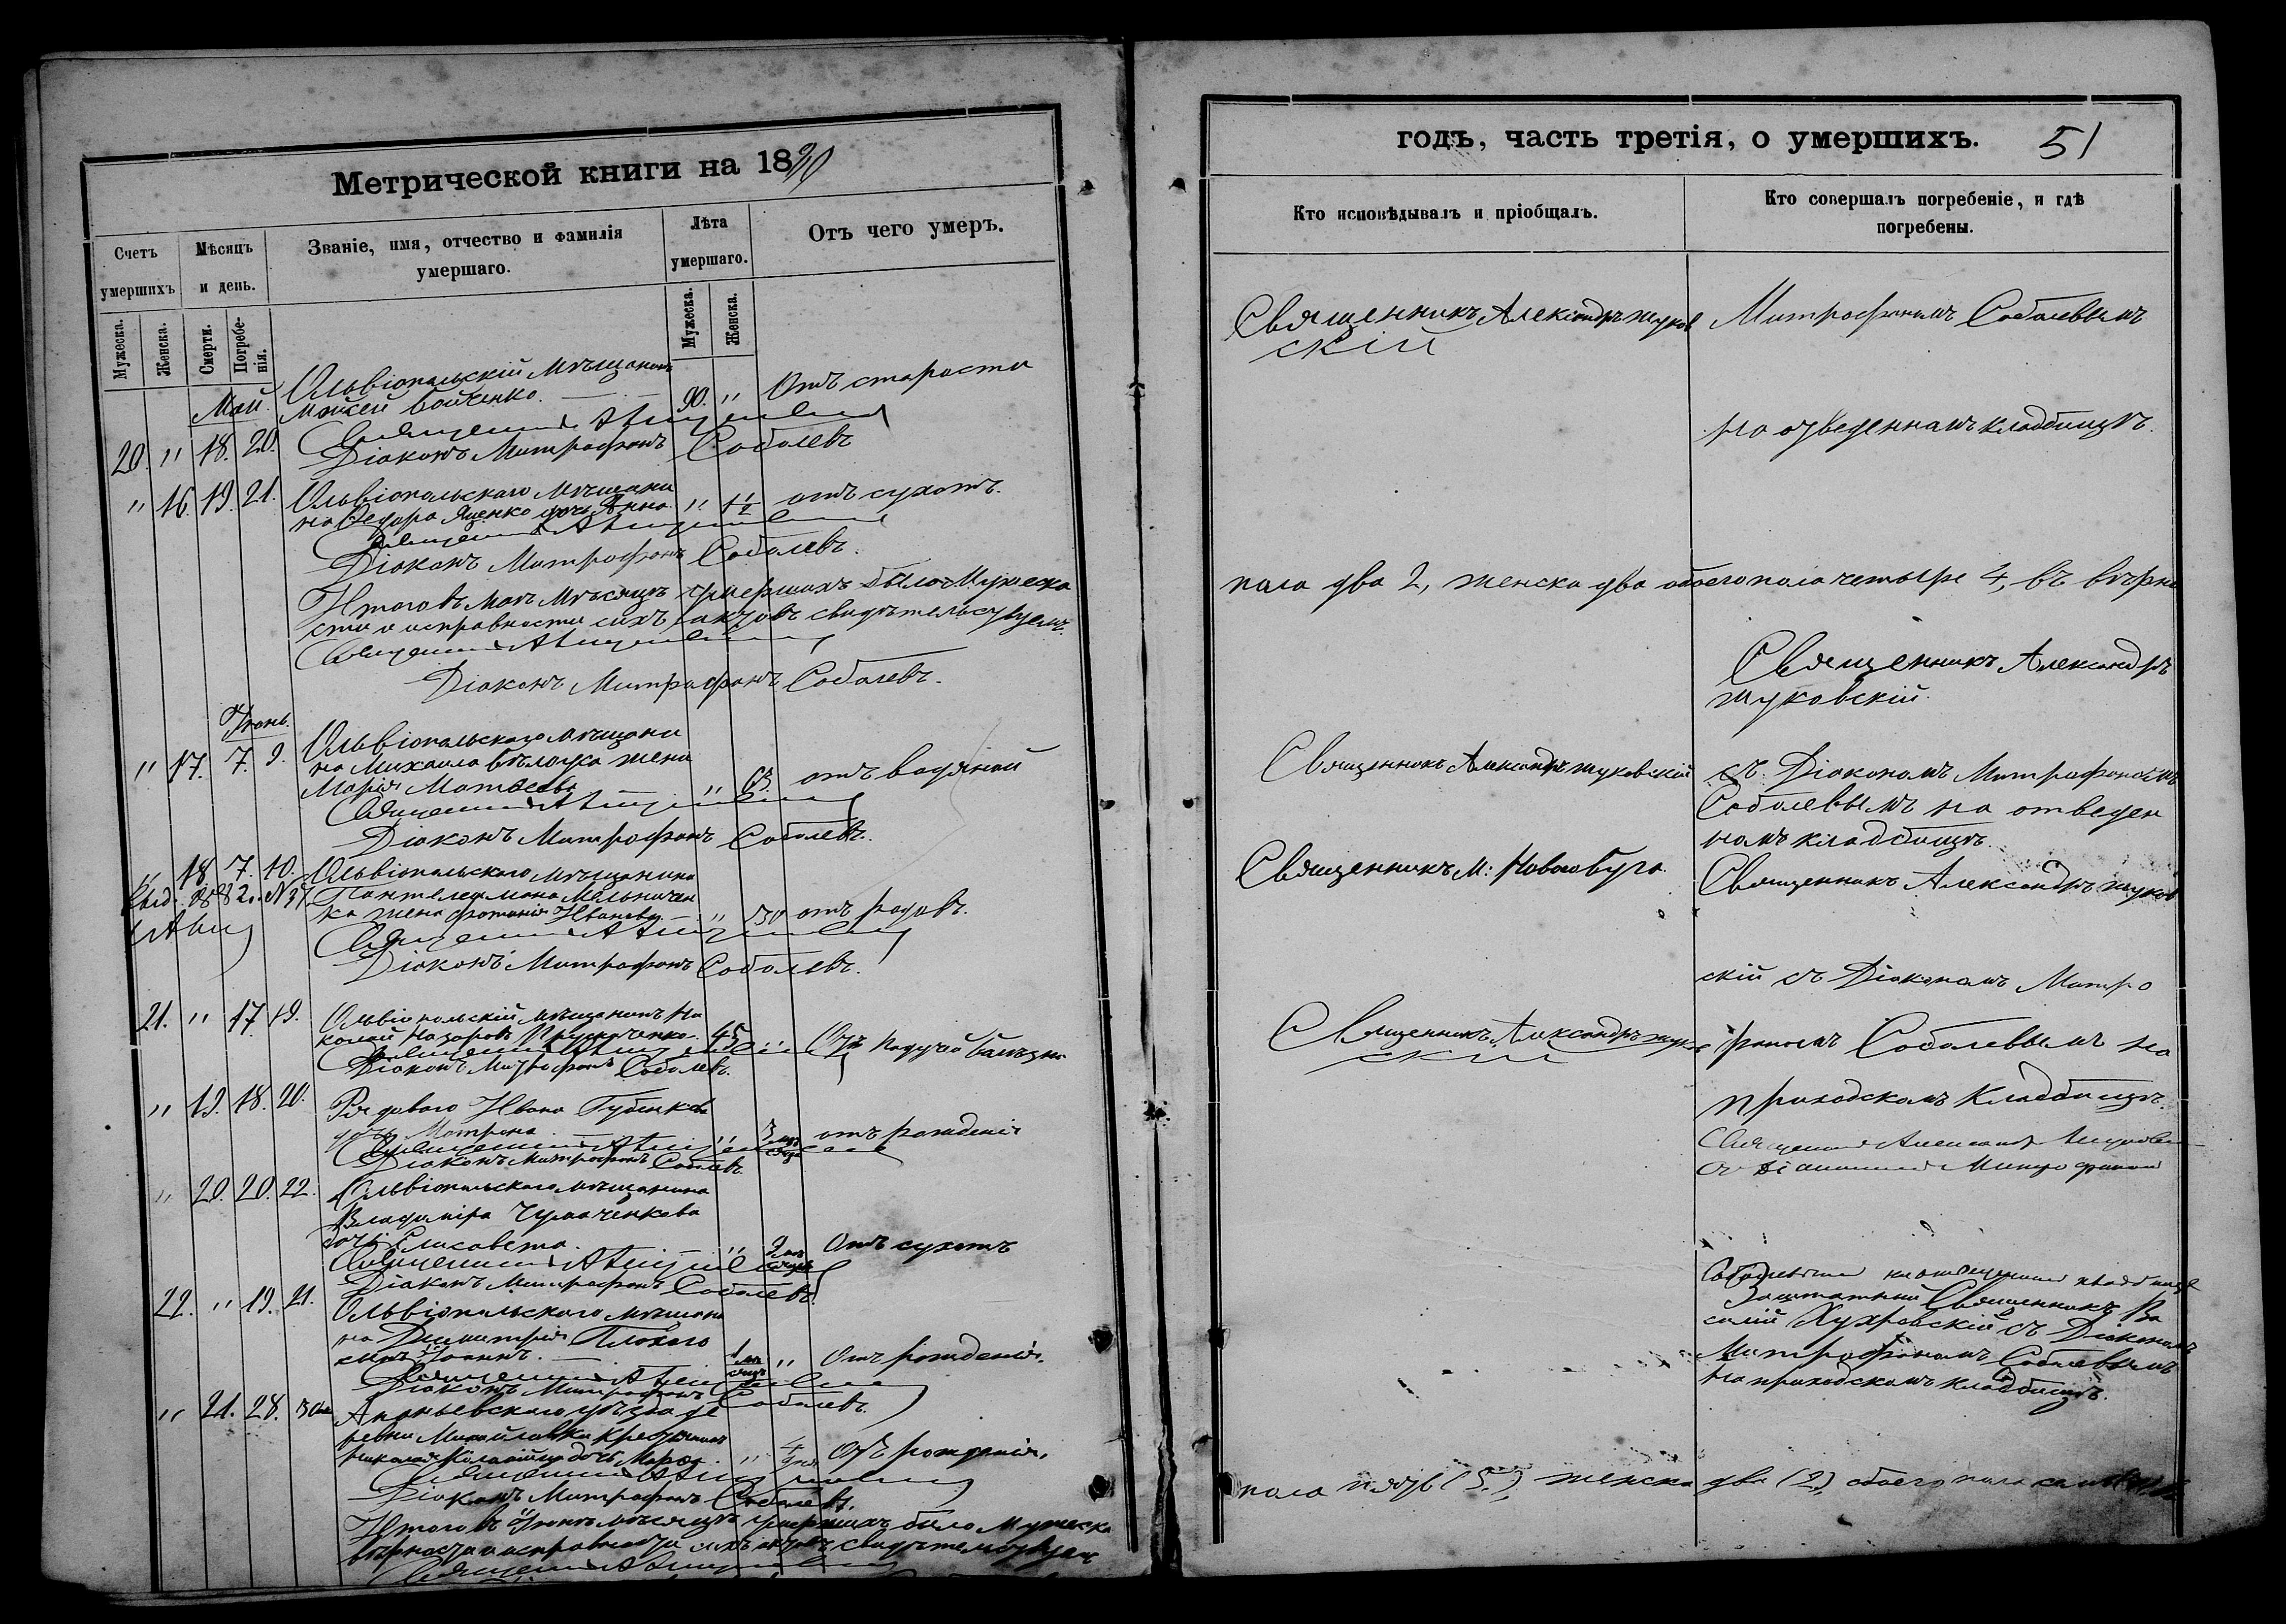 Метрической книги на 1890
Счетъ умершихъ
Мѣсяцъ и день.
Званіе, имя, отчество и фамилія умершаго.
Лѣта умершаго.
Отъ чего умеръ.
Мужеска.
Женска.
Смерти.
Погребенія.
Мужеска.
Женска.
Май.
Ольвіопольскій мѣщанинъ
20 " 18. 20. Моисей Войченко. 90. " Отъ старости
Священникъ
Діаконъ Митрофанъ Соболевъ
" 16. 19. 21. Ольвіопольскаго мѣщани
на Ѳедора Яценко дочь Анна " 1½ отъ сухотъ.
Священникъ
Діаконъ Митрофанъ Соболевъ.
Итого въ маѣ мѣсяцѣ умершихъ было Мужеска
сти и исправности сихъ актовъ свидѣтельствуемъ.
Священникъ
Діаконъ Митрофанъ Соболевъ.
Іюнь.
" 17. 7. 9. Ольвіопольскаго мѣщани
на Михаила Бѣлоуса жена
Марія Матвеева " отъ водяной
Священникъ
Діаконъ Митрофанъ Соболевъ.
" 18 7. 10. Ольвіопольскаго мѣщанина
Пантелеймона Мельничен
ка жена Фотинія Иванова. " 30 отъ родовъ.
Священникъ
Діаконъ Митрофанъ Соболевъ.
21. " 17 19. Ольвіопольскій мѣщанинъ Ни
колай Назаровъ 45 " Отъ падучей болѣзни
Священникъ
Діаконъ Митрофанъ Соболевъ.
" 19. 18. 20. Рядового Ивана Губенкова
дочь Матрона " 3 мѣсяца отъ рожденія
Священникъ
Діаконъ Митрофанъ Соболевъ
" 20. 20. 22. Ольвіопольскаго мѣщанина
Владиміра Чумаченкова
дочь Елисавета. " Отъ сухотъ
Священникъ
Діаконъ Митрофанъ Соболевъ.
22. " 19. 21. Ольвіопольскаго мѣщани
на Димитрія Плохого
сынъ Іоаннъ. 1 мѣсяцъ " Отъ рожденія.
Священникъ
Діаконъ Митрофанъ Соболевъ.
" 21. 28. 30 Ананьевскаго уѣзда де
ревни Михайловки крестьянина
Николая дочь " 4 дня Отъ рожденія.
Священникъ
Діаконъ Митрофанъ Соболевъ.
Итого въ Іюнѣ мѣсяцѣ умершихъ было Мужеска
вѣрности и исправности сихъ актовъ свидѣтельствуемъ
Священникъ
годъ, часть третія, о умершихъ. 51
Кто исповѣдывалъ и пріобщалъ.
Кто совершалъ погребеніе, и гдѣ погребены.
Священникъ Александръ Жуков
скій
Митрофаномъ Соболевымъ
на отведенномъ кладбищѣ.
пола два 2, женска два обоего пола четыре 4, въ вѣрно
Священникъ Александръ
Жуковскій.
Священникъ Александръ Жуковскій
съ Діакономъ Митрофаномъ
Соболевымъ на отведен
номъ кладбищѣ.
Священникъ М: Новаго Буга.
Священникъ Александръ Жуков
скій съ Діакономъ Митро
Священникъ Александръ Жуков
скій
фаномъ Соболевымъ на
приходскомъ кладбищѣ.
Священникъ Александръ Жуковскій
съ Діакономъ Митрофаномъ
Соболевымъ на отведенномъ кладбищѣ
Заштатный Священникъ Ва
силій съ Діакономъ
Митрофаномъ Соболевымъ
на приходскомъ кладбищѣ.
пола пять (5.), женска два (2), обоего пола семь